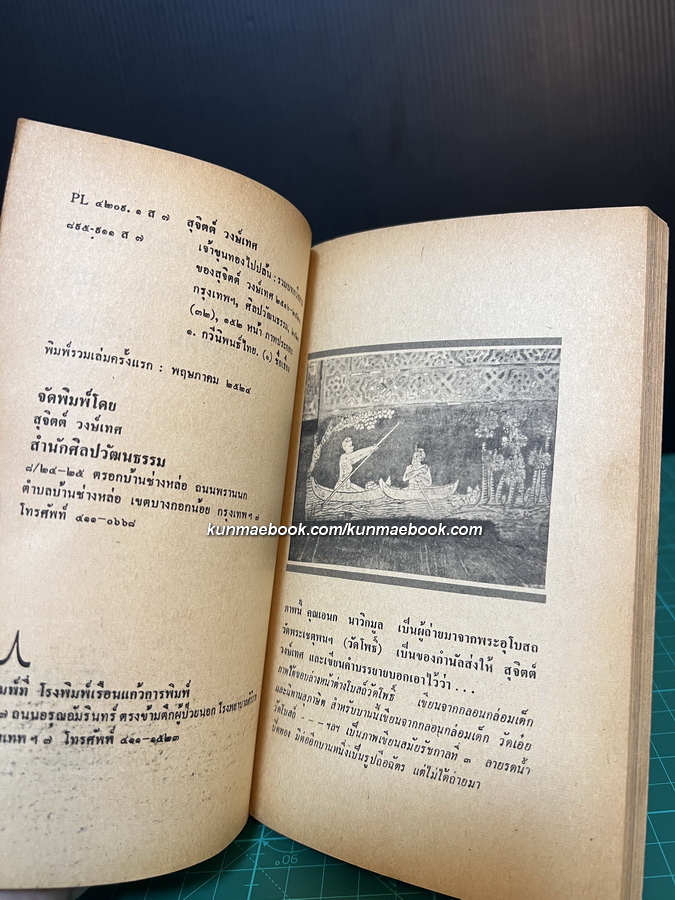 PL ๔๒๐๙. ๑ ส ๗ สุจิตต์ วงษ์เทศ
๘๙๕.๙๑๑ ส ๗
เจ้าขุนทองไปปล้น : รวมบท
ของสุจิตต์ วงษ์เทศ ๒๕๑๖-
กรุงเทพฯ, ศิลปวัฒนธรรม,
(๓๒), ๑๕๒ หน้า ภาพประกอบ
๑. กวีนิพนธ์ไทย. (๑) ชื่อเรื่อง
พิมพ์รวมเล่มครั้งแรก : พฤษภาคม ๒๕๒๔
จัดพิมพ์โดย
สุจิตต์ วงษ์เทศ
สำนักศิลปวัฒนธรรม
๘/๒๔-๒๕ ตรอกบ้านช่างหล่อ ถนนพรานนก
ตำบลบ้านช่างหล่อ เขตบางกอกน้อย กรุงเทพฯ ๗
โทรศัพท์ ๔๑๑-๐๖๖๘
มพ์ที่ โรงพิมพ์เรือนแก้วการพิมพ์
๗ ถนนอรุณอัมรินทร์ ตรงข้ามตึกผู้ป่วยนอก โรงพยาบาลศิริราช
เทพฯ ๗ โทรศัพท์ ๔๑๑-๑๕๒๓
kunmaebook.com/kunmaebook.com
ภาพนี้ คุณเอนก นาวิกมูล เป็นผู้ถ่ายมาจากพระอุโบสถ
วัดพระเชตุพนฯ (วัดโพธิ์) เป็นของกำนัลส่งให้ สุจิตต์
วงษ์เทศ และเขียนคำบรรยายบอกเอาไว้ว่า ...
ภาพใต้ขอบล่างหน้าต่างโบสถ์วัดโพธิ์ เขียนจากกลอนกล่อมเด็ก
และนทานสุภาษิต สำหรับบานนี้เขียนจากกลอนกล่อมเด็ก วัดเอ๋ย
วัดโบสถ์ - - - ฯลฯ เป็นภาพเขียนสมัยรัชกาลที่ ๓ ลายรดน้ำ
ปิดทอง มีต่ออีกบานหนึ่งเป็นรูปถือฉัตร แต่ไม่ได้ถ่ายมา